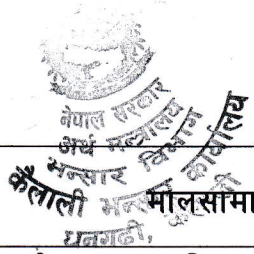 नेपाल सरकार
अर्थ मन्त्रालय
भन्सार विभाग
कैलाली भन्सार कार्यालय
धनगढी,
मालसामा